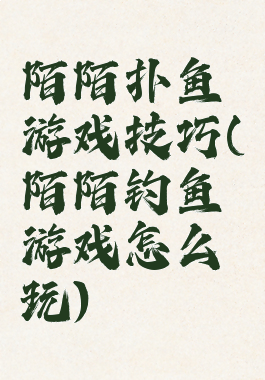 陌陌扑鱼
游戏技巧(
陌陌钓鱼
游戏怎么
玩)